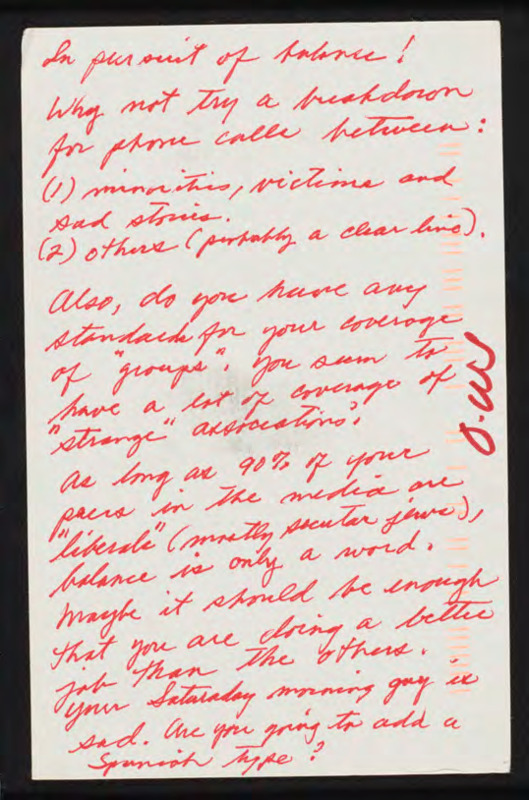 In pursuit of balance!
Why not try a breakdown
for phone calls between:
(1) minorities, victims and
sad stories.
(2) others (probably a clear line).
Also, do you have any
standards for your coverage
of "groups". You seem to
have a lot of coverage of
"strange" associations.
As long as 90% of your
peers in the media are
"liberals" (mostly secular jews),
balance is only a word.
Maybe it should be enough
that you are doing a better
job than the others.
your Saturaday morning guy is
sad. Are you going to add a
Spanish type?